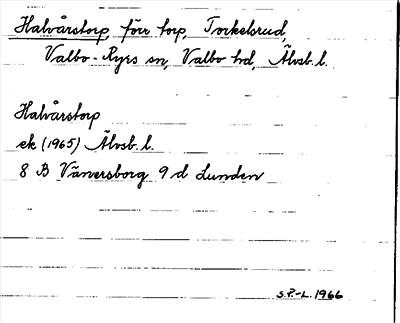 Halvårstorp, förr torp, Torkelsrud,
Valbo-Ryrs sn, Valbo hd, Älvsb. l.
Halvårstorp
ek (1965) Älvsb. l.
8 B Vänersborg 9 d Lunden
S.P.-L. 1966